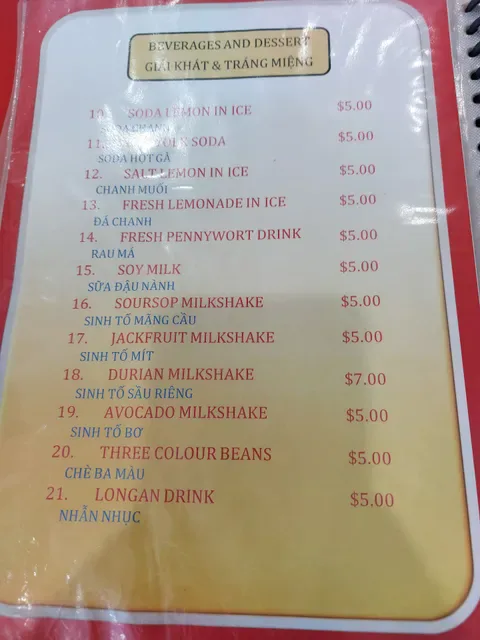 BEVERAGES AND DESSERT
GIẢI KHÁT & TRÁNG MIỆNG
10. SODA LEMON IN ICE $5.00
SODA CHANH
11. SODA $5.00
SODA HỘT GÀ
12. SALT LEMON IN ICE $5.00
CHANH MUỐI
13. FRESH LEMONADE IN ICE $5.00
ĐÁ CHANH
14. FRESH PENNYWORT DRINK $5.00
RAU MÁ
15. SOY MILK $5.00
SỮA ĐẬU NÀNH
16. SOURSOP MILKSHAKE $5.00
SINH TỐ MÃNG CẦU
17. JACKFRUIT MILKSHAKE $5.00
SINH TỐ MÍT
18. DURIAN MILKSHAKE $7.00
SINH TỐ SẦU RIÊNG
19. AVOCADO MILKSHAKE $5.00
SINH TỐ BƠ
20. THREE COLOUR BEANS $5.00
CHÈ BA MÀU
21. LONGAN DRINK $5.00
NHẪN NHỤC